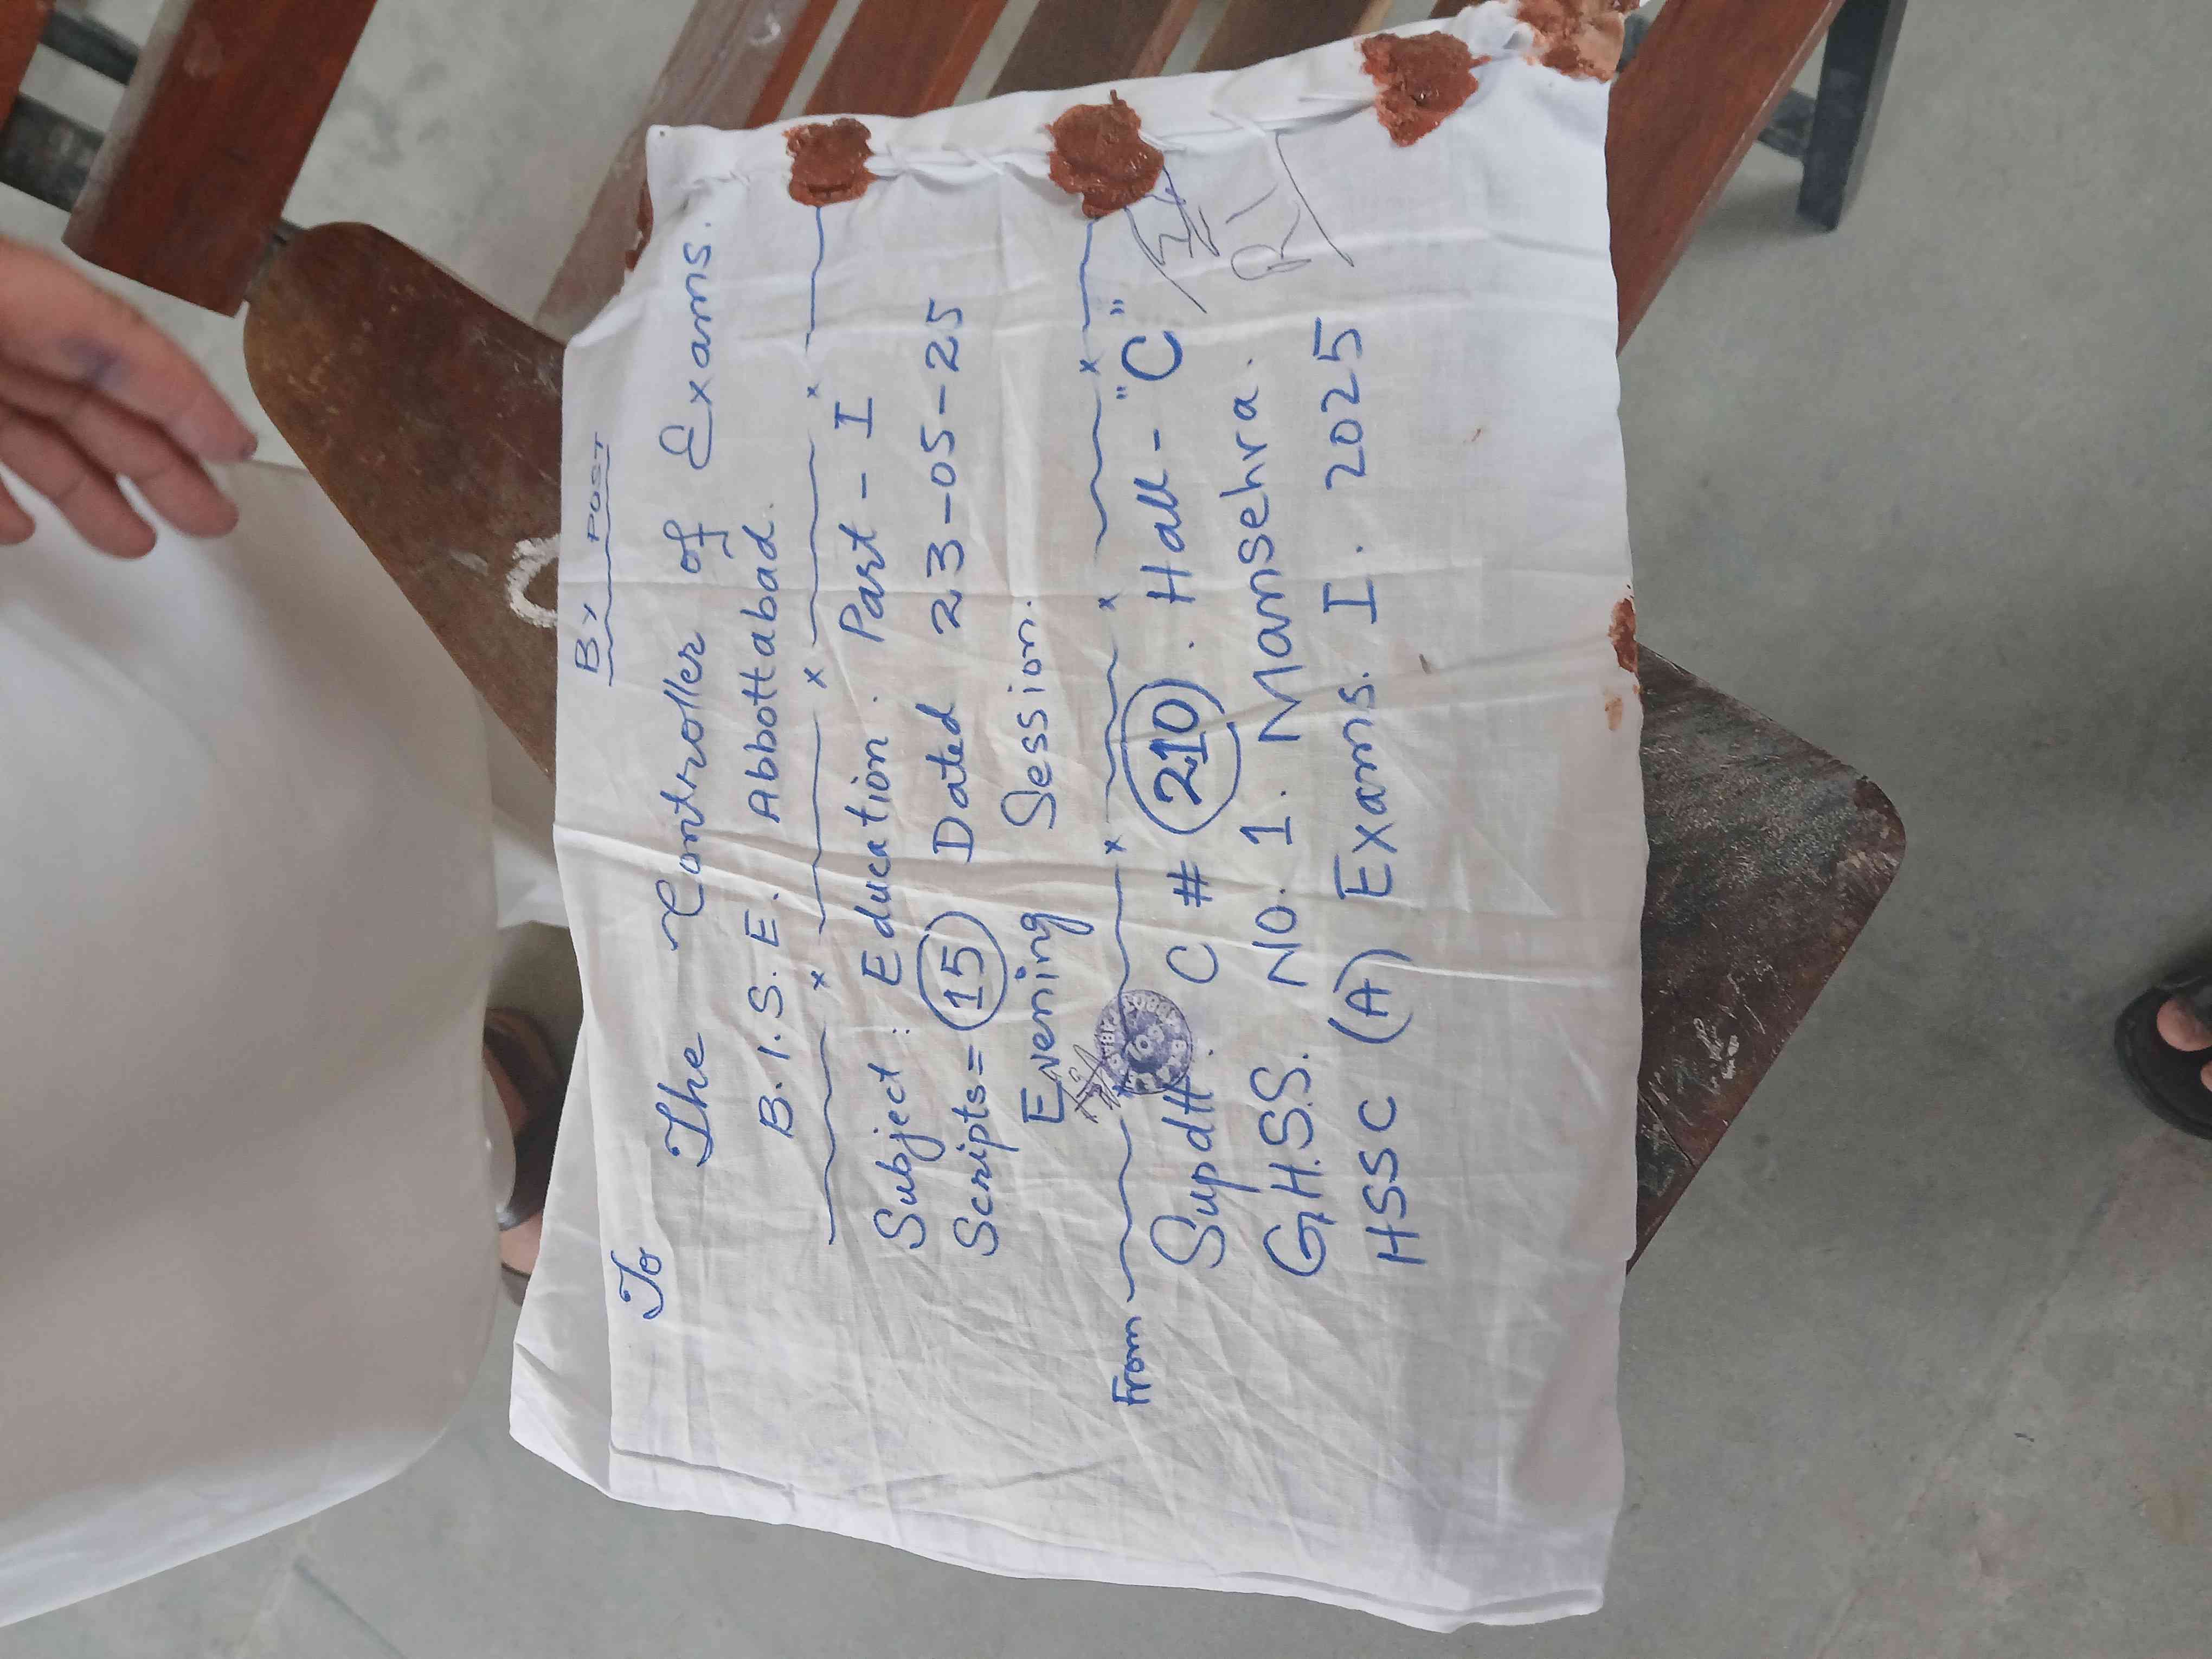 By POST
To
The Controller of Exams.
B.I.S.E. Abbottabad.
Subject : Education. Part - I
Scripts = 15 Dated 23-05-25
Evening Session.
From
Supdtt. C # 210. Hall - "C"
G.H.S.S. No. 1. Mansehra.
HSSC (A) Exams. I. 2025